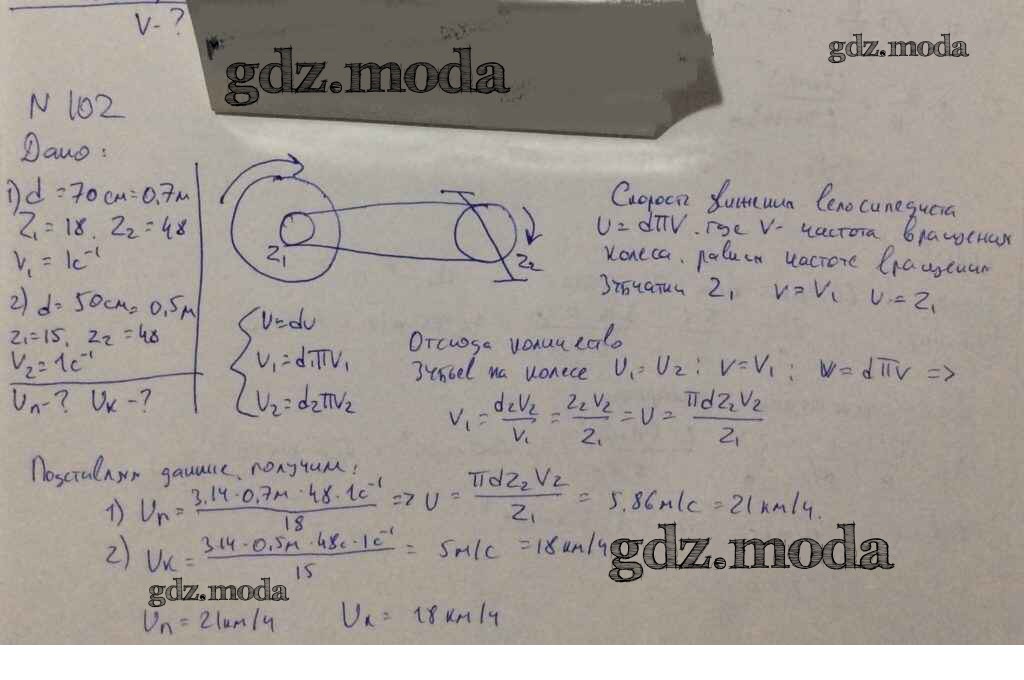 V-?
gdz.moda
gdz.moda
N 102
Дано:
1) d = 70 см = 0,7 м
Z₁ = 18, Z₂ = 48
V₁ = 1c⁻¹
2) d = 50 см = 0,5 м
Z₁ = 15, Z₂ = 48
V₂ = 1c⁻¹
Uп-? Uк-?
Z₁
Z₂
Скорость движения велосипедиста
U = dπV, где V- частота вращения
колеса, равна частоте вращения
Зубчатки Z₁ V = V₁ U = Z₁
U = dU
V₁ = d₁πV₁
U₂ = d₂πV₂
Отсюда количество
Зубьев на колесе U₁ = U₂; V = V₁; V = dπV =>
V₁ = d₂V₂/V₁ = Z₂V₂/Z₁ = U = πdZ₂V₂/Z₁
Подставляя данные, получим:
1) Uп = 3,14·0,7м·48·1c⁻¹/18 => U = πdZ₂V₂/Z₁ = 5,86 м/с = 21 км/ч.
2) Uк = 3,14·0,5м·48c·1c⁻¹/15 = 5 м/с = 18 км/ч
gdz.moda
gdz.moda
Uп = 21 км/ч Uк = 18 км/ч